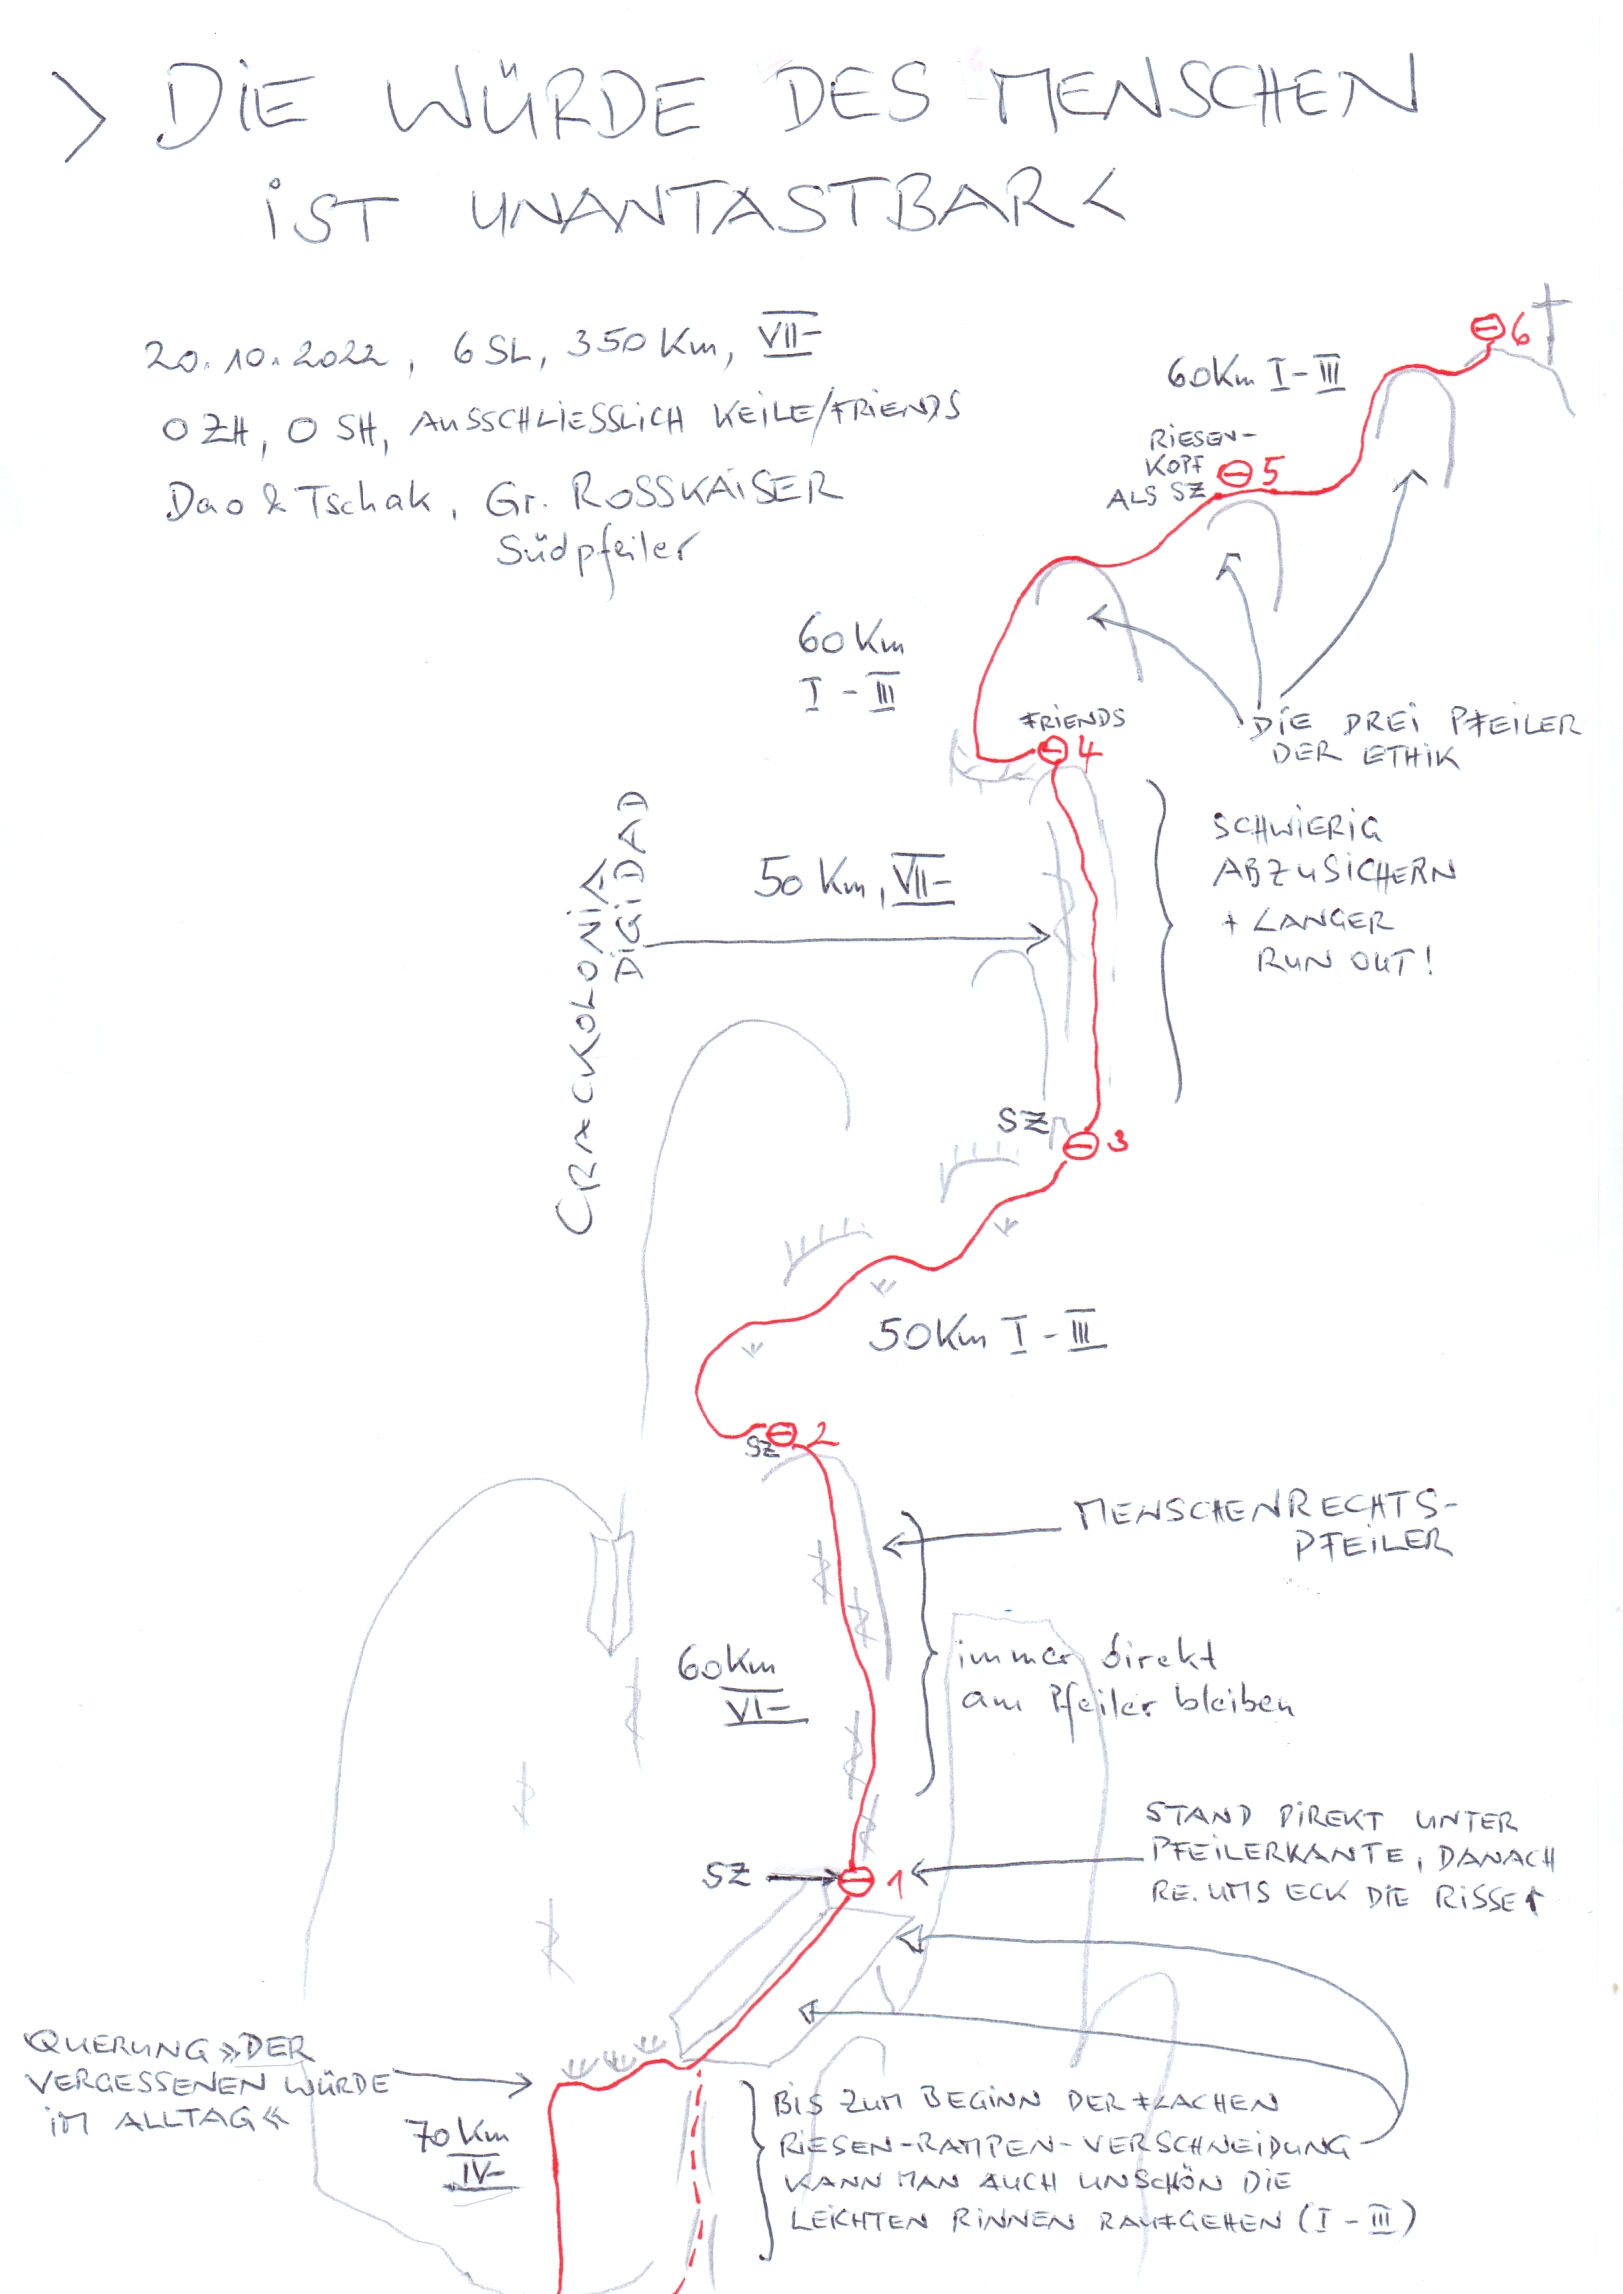 > DIE WÜRDE DES MENSCHEN
IST UNANTASTBAR <
20.10.2022, 6 SL, 350 Km, VII-
0 ZH, 0 SH, AUSSCHLIESSLICH KEILE/FRIENDS
Dao & Tschak, Gr. ROSSKAISER
Südpfeiler
6
60Km I-III
RIESEN-
KOPF
ALS SZ
5
60 Km
I - III
FRIENDS
4
DIE DREI PFEILER
DER ETHIK
SCHWIERIG
ABZUSICHERN
+ LANGER
RUN OUT!
50 Km, VII-
DIGIDAD
SZ
3
50Km I - III
SZ
2
MENSCHENRECHTS-
PFEILER
60Km
VI-
immer direkt
am Pfeiler bleiben
SZ
1
STAND DIREKT UNTER
PFEILERKANTE, DANACH
RE. UMS ECK DIE RISSE ↑
QUERUNG »DER
VERGESSENEN WÜRDE
IM ALLTAG«
70Km
IV-
BIS ZUM BEGINN DER FLACHEN
RIESEN-RAMPEN-VERSCHNEIDUNG
KANN MAN AUCH UNSCHÖN DIE
LEICHTEN RINNEN RAUFGEHEN (I - III)